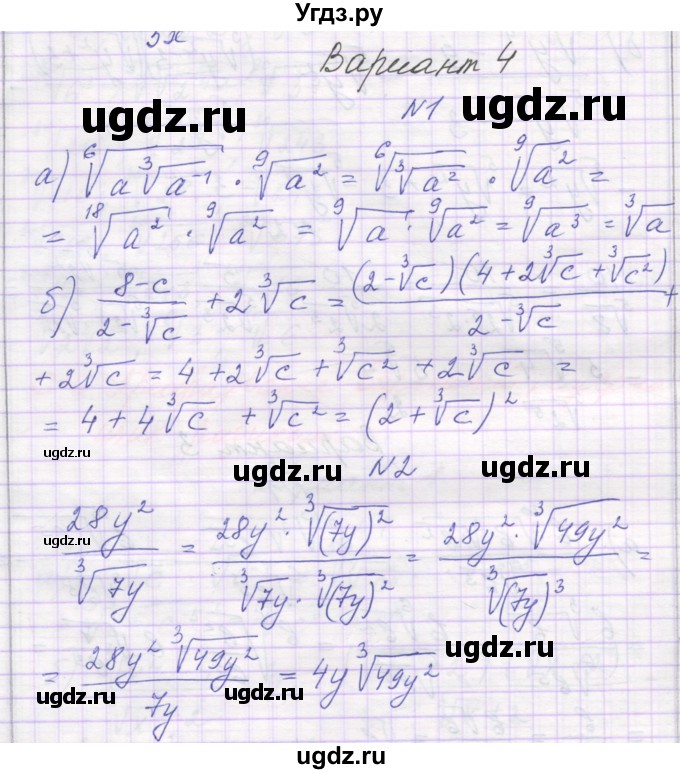 Угдз.ру
3x
Вариант 4
ugdz.ru ugdz.ru
N1
а) ⁶√(a ³√(a⁻¹)) · ⁹√(a²) = ⁶√(³√(a²)) · ⁹√(a²) =
= ¹⁸√(a²) · ⁹√(a²) = ⁹√a · ⁹√(a²) = ⁹√(a³) = ³√a
б) (8-c)/(2-³√c) + 2³√c = ((2-³√c)(4+2³√c+³√(c²)))/(2-³√c) +
+ 2³√c = 4 + 2³√c + ³√(c²) + 2³√c =
= 4 + 4³√c + ³√(c²) = (2+³√c)²
ugdz.ru ugdz.ru ugdz.ru
N2
28y²/³√(7y) = (28y² · ³√((7y)²))/(³√(7y) · ³√((7y)²)) = (28y² · ³√(49y²))/³√((7y)³) =
ugdz.ru ugdz.ru
= (28y² ³√(49y²))/7y = 4y ³√(49y²)
ugdz.ru ugdz.ru ugdz.ru
ugdz.ru